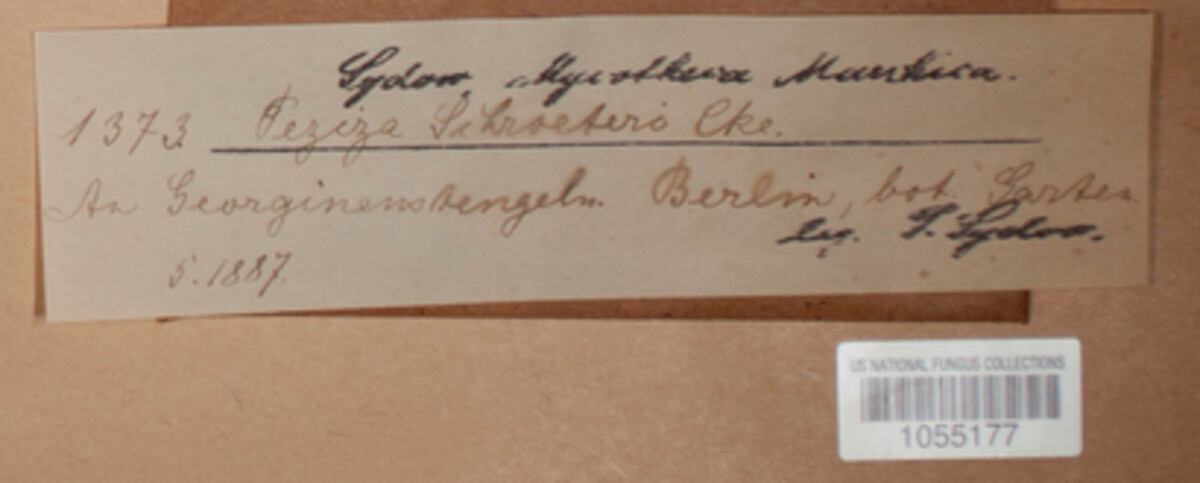 Sydow, Mycotheca Marchica.
1373. Peziza Schroeteri Cke.
An Georginenstengeln. Berlin, bot. Garten
Leg. P. Sydow.
5. 1887.
US NATIONAL FUNGUS COLLECTIONS
1055177